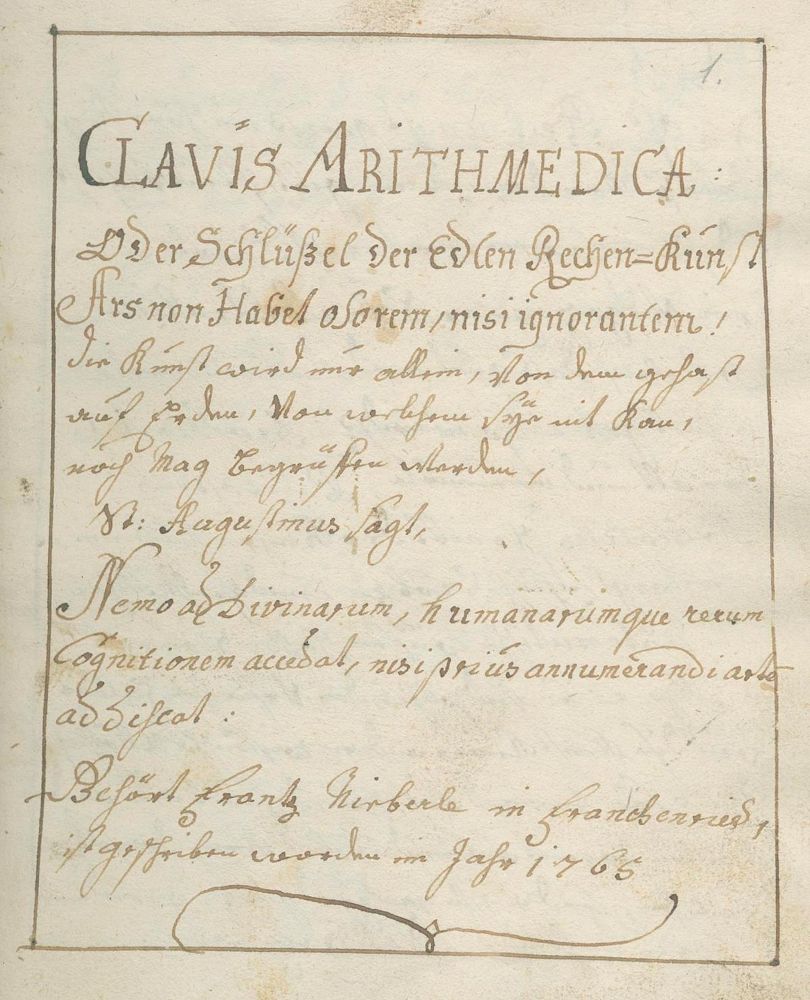 1.
CLAVIS ARITHMEDICA:
Oder Schlüßel der Edlen Rechen=Kunst
Ars non Habet osorem, nisi ignorantem!
die Kunst wird nur allein, Von dem gehast
auf Erden, Von welchem sÿe nit Kan,
noch Mag begrüssen werden,
St: Augustinus sagt,
Nemo ad Divinarum, humanarumque rerum
Cognitionem accedat, nisi prius annumerandi arte
addiscat:
Behört Frantz Nieberle in Franckenried,
ist geschriben worden im Jahr 1765